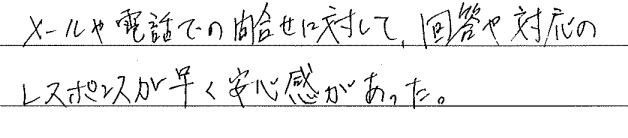 メールや電話での問合せに対して、回答や対応の
レスポンスが早く安心感があった。